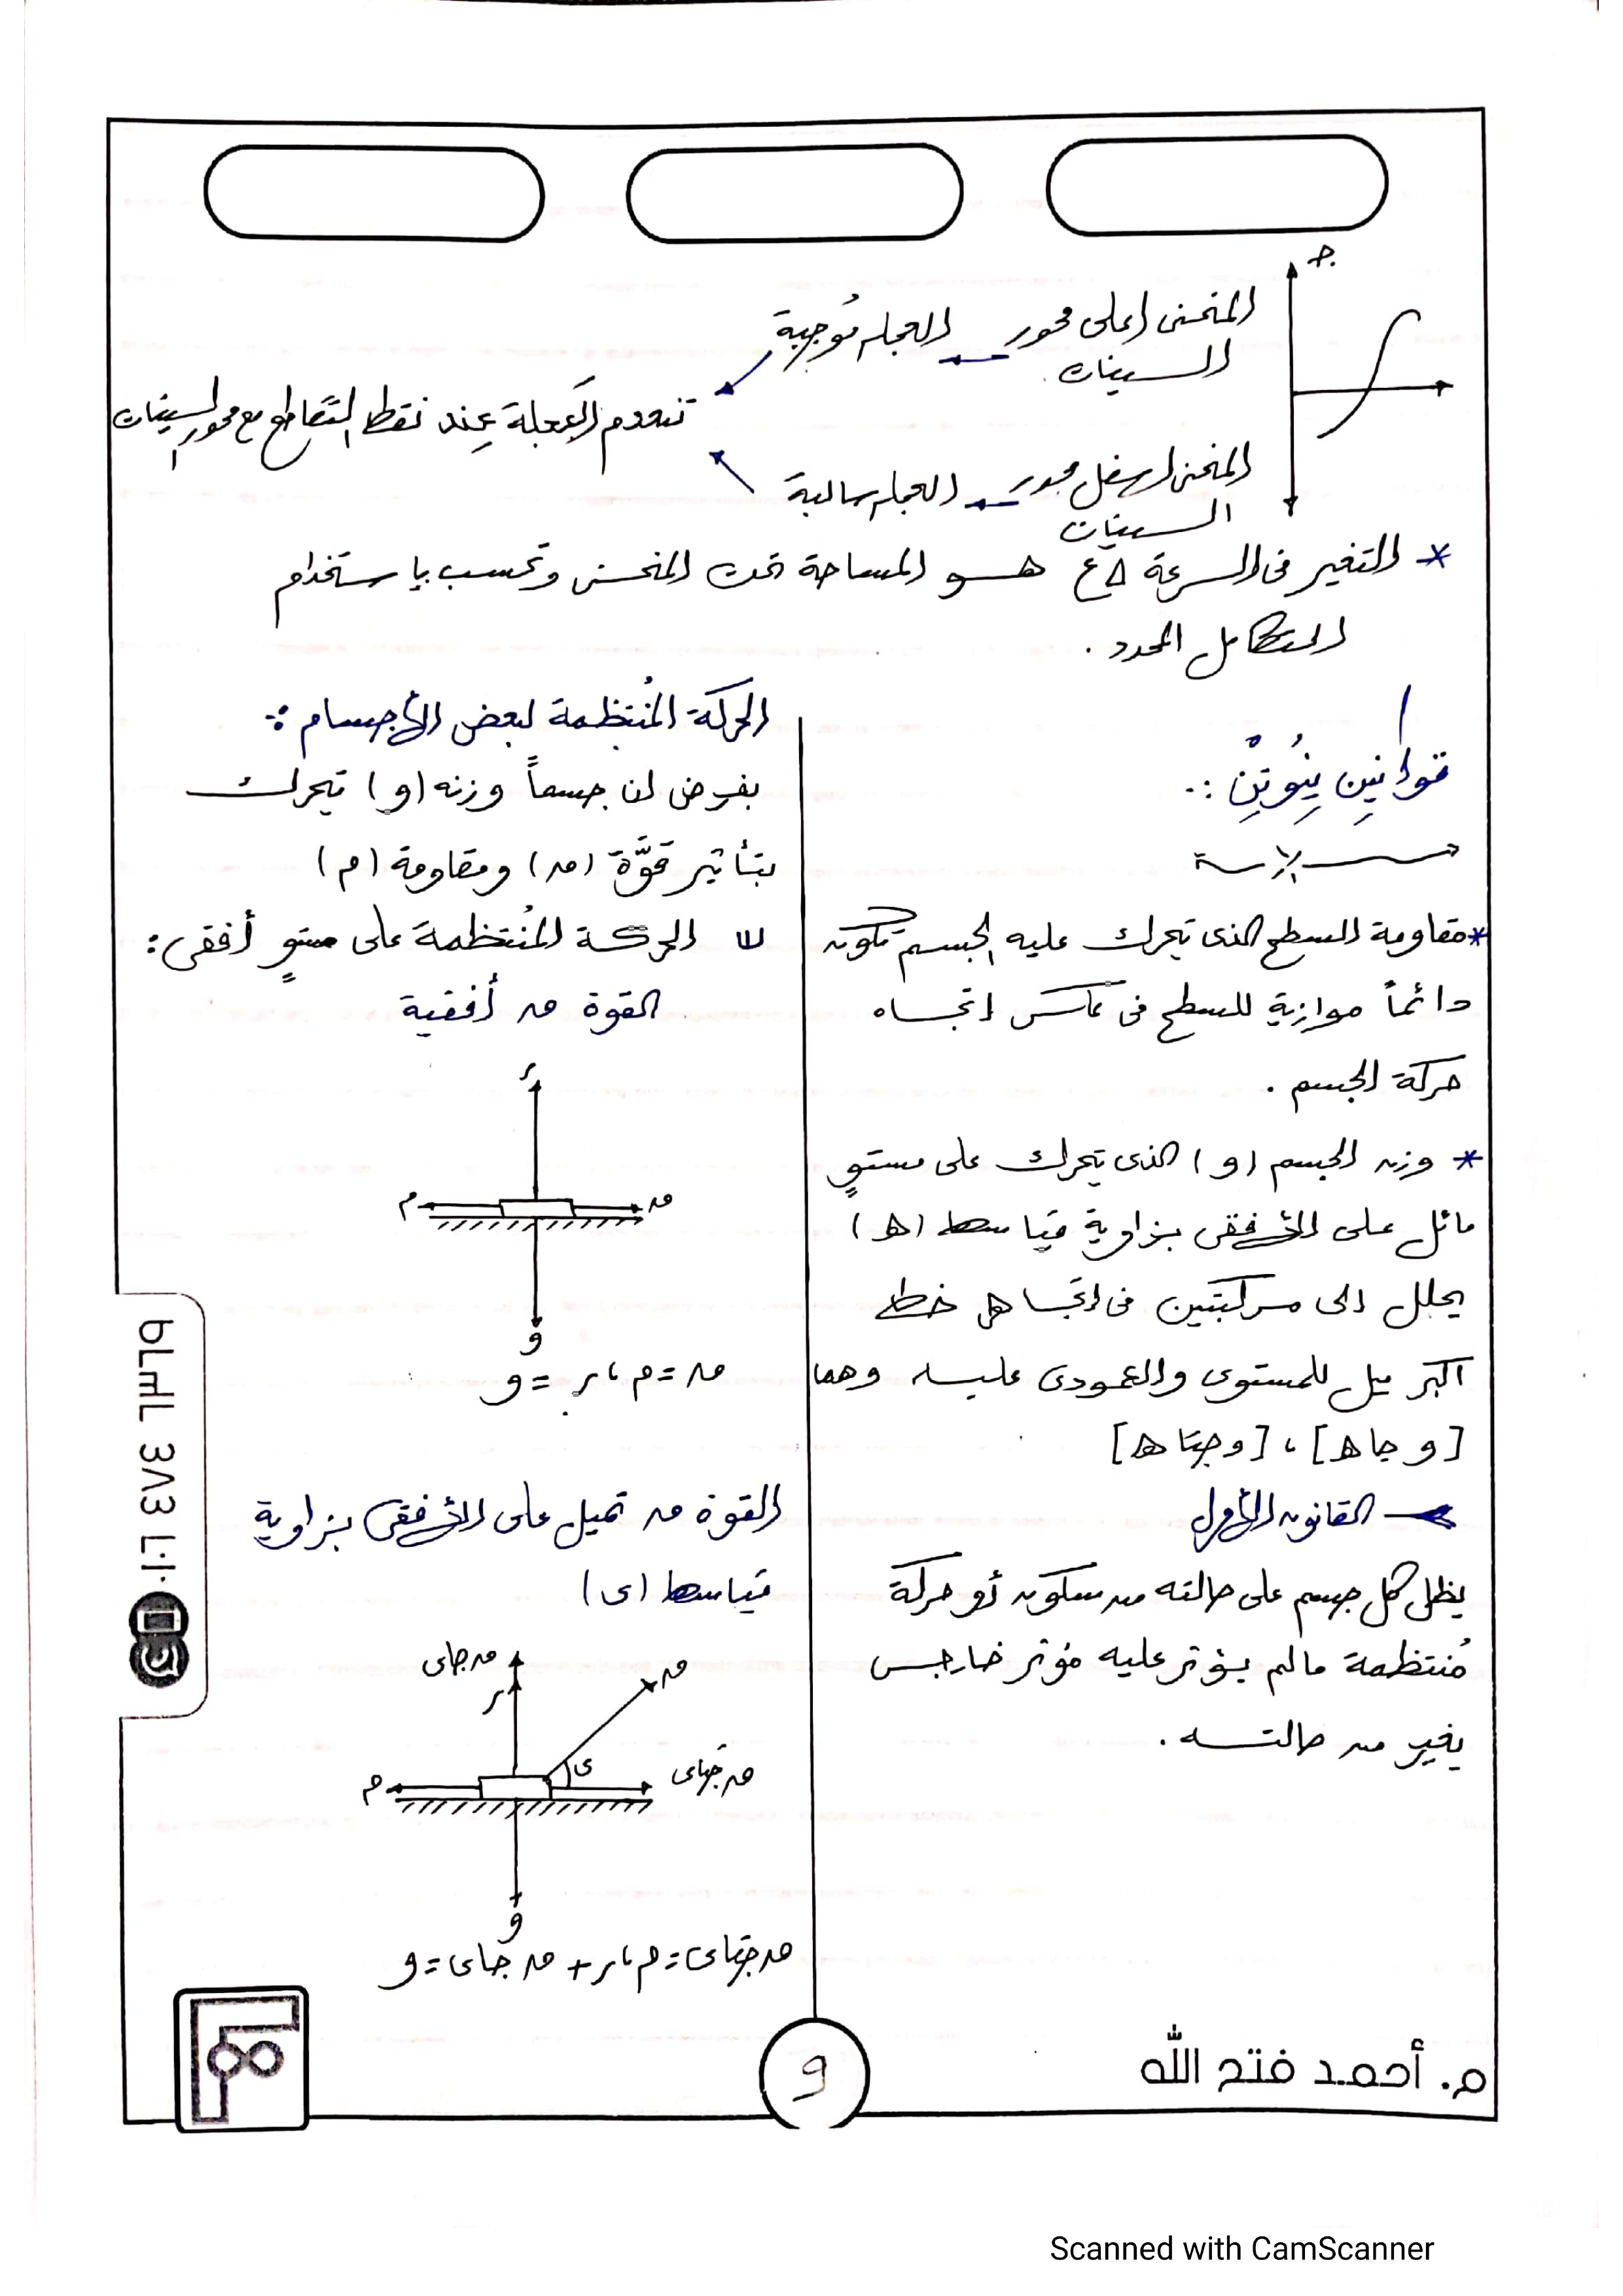 جـ
المنحنى أعلى محور السينات ← العجلة موجبة
تنعدم العجلة عند نقط التقاطع مع محور السينات
المنحنى أسفل محور السينات ← العجلة سالبة
* التغير فى السرعة Δع هو المساحة تحت المنحنى وتحسب باستخدام
التكامل المحدد .
قوانين نيوتن :.
*مقاومة السطح الذى تتحرك عليه الجسم تكون
دائماً موازية للسطح فى عكس اتجاه
حركة الجسم .
* وزن الجسم (و) الذى يتحرك على مستوٍ
مائل على الأفقى بزاوية قياسها (هـ)
يحلل الى مركبتين فى اتجاهى خط
اكبر ميل للمستوى والعمودى عليه وهما
[و جا هـ] ، [و جتا هـ]
القانون الأول
يظل كل جسم على حالته من سكون أو حركة
مُنتظمة مالم يؤثر عليه مؤثر خارجى
يغير من حالته .
الحركة المُنتظمة لبعض الأجسام :
بفرض أن جسماً وزنه (و) تتحرك
بتأثير قوَّة (ں) ومقاومة (م)
الحركة المُنتظمة على مستوٍ أفقى :
القوة ں أفقية
ر
م
ں
و
ں = م ، ر = و
القوة ں تميل على الأفقى بزاوية
قياسها (ى)
ں جاى
ر
ں
ى
م
ں جتاى
و
ں جتاى = م ، ر + ں جاى = و
٠١٠٦ ٤٨٤ ٦٣٦٩
م. أحمد فتح الله
9
Scanned with CamScanner